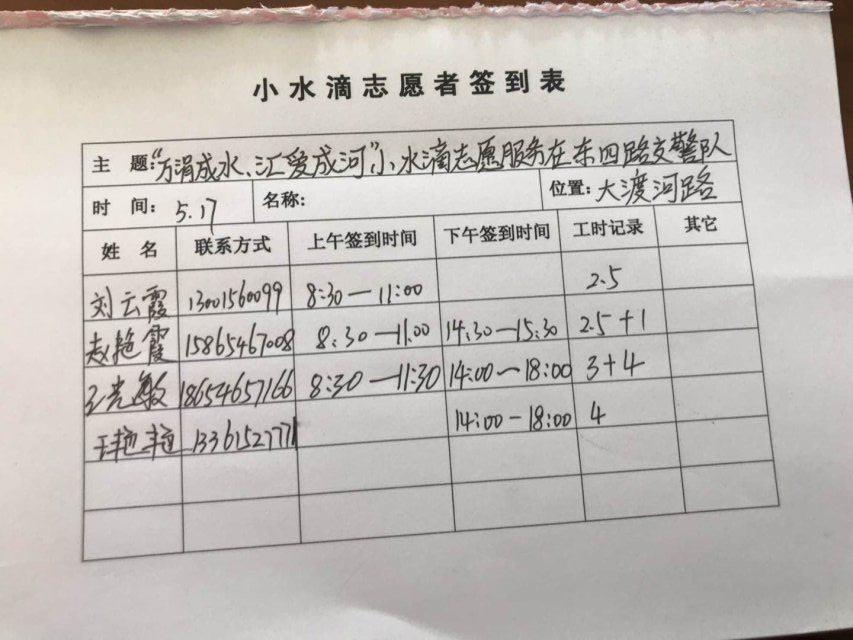 小水滴志愿者签到表
主 题:"万涓成水、汇爱成河"小水滴志愿服务在东四路交警队
时 间: 5.17 名称: 位置: 大渡河路
姓 名 联系方式 上午签到时间 下午签到时间 工时记录 其它
刘云霞 13001560099 8:30—11:00 2.5
赵艳霞 15865467008 8:30—11:00 14:30—15:30 2.5+1
王光敏 18654657166 8:30—11:30 14:00—18:00 3+4
王艳 13361527771 14:00-18:00 4